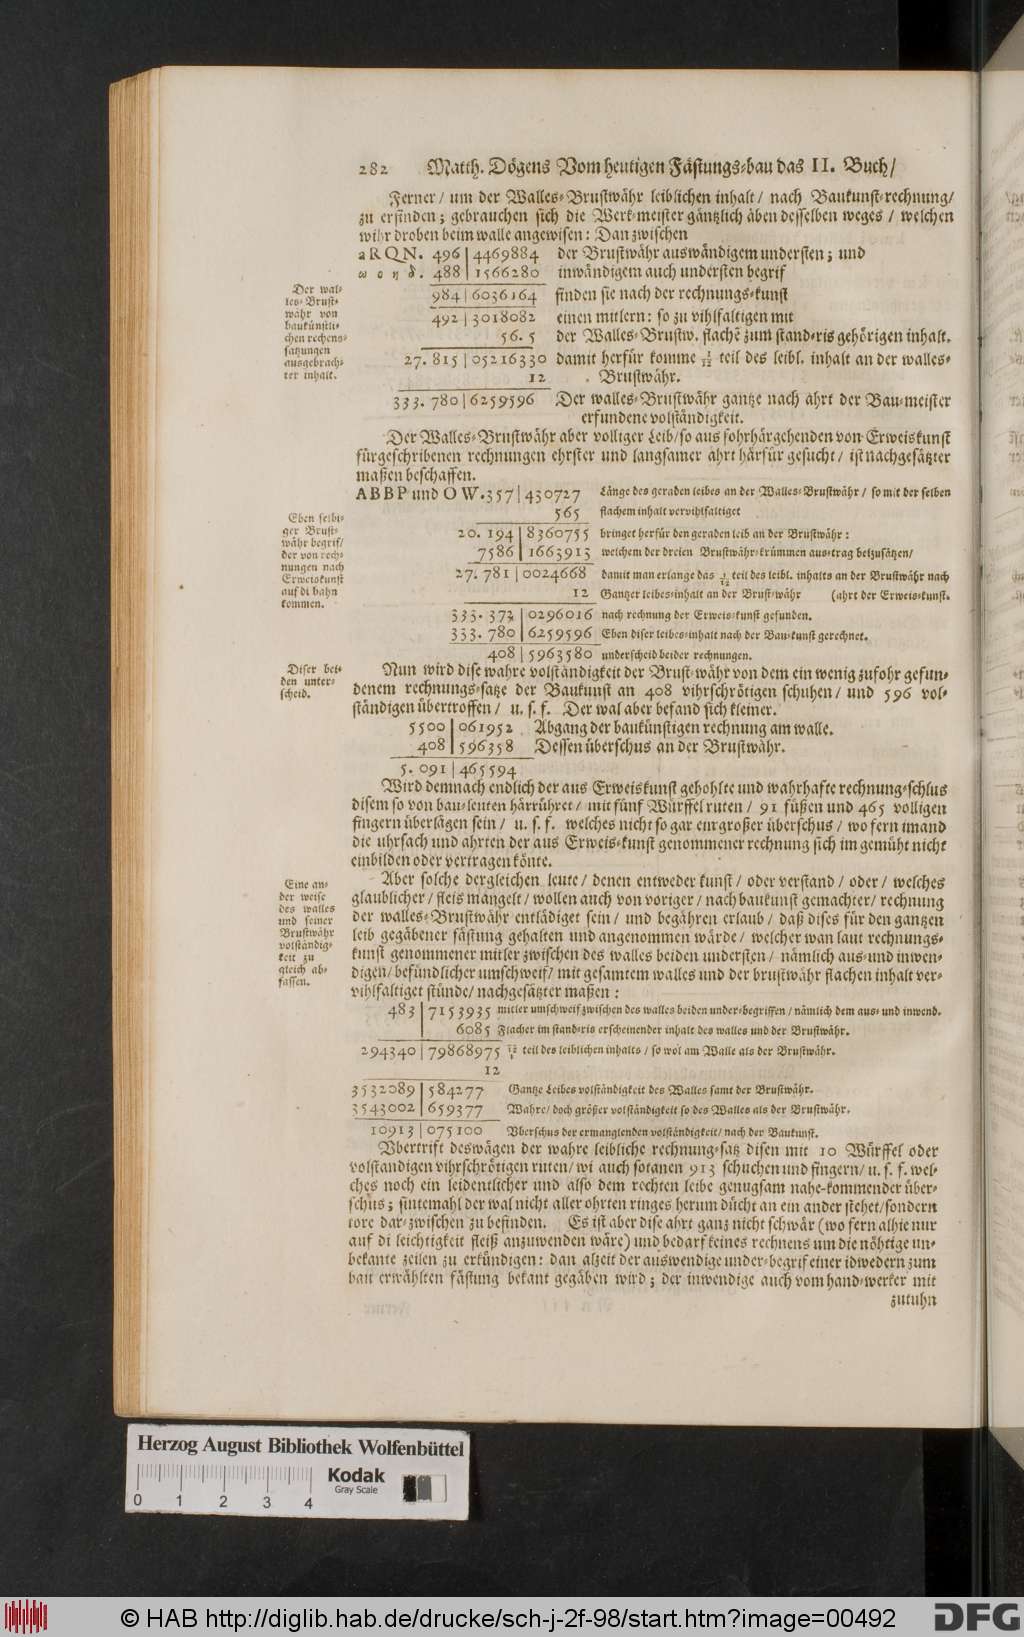 282 Matth. Dögens Vom heutigen Fästungs-bau das II. Buch/
Ferner / um der Walles-Brustwähr leiblichen inhalt / nach Baukunst-rechnung/
zu erfinden ; gebrauchen sich die Werk-meister gäntzlich äben desselben weges / welchen
wihr droben beim walle angewisen : Dan zwischen
aRQN. 496 | 4469884 der Brustwähr auswändigem understen ; und
ω ο η δ. 488 | 1566280 inwändigem auch understen begrif
984 | 6036164 finden sie nach der rechnungs-kunst
492 | 3018082 einen mitlern : so zu vihlfaltigen mit
56. 5 der Walles-Brustw. flachē zum stand-ris gehörigen inhalt.
27. 815 | 05216330 damit herfür komme 1/12 teil des leibl. inhalt an der walles-
12 Brustwähr.
333. 780 | 6259596 Der walles-Brustwähr gantze nach ahrt der Bau-meister
erfundene volständigkeit.
Der wal-
les-Brust-
währ von
baukünstli-
chen rechens-
satzungen
ausgebrach-
ter inhalt.
Der Walles-Brustwähr aber volliger Leib/ so aus fohrhärgehenden von Erweiskunst
fürgeschribenen rechnungen ehrster und langsamer ahrt härfür gesucht / ist nachgesätzter
maßen beschaffen.
ABBP und OW. 357 | 430727 Länge des geraden leibes an der Walles-Brustwähr / so mit der selben
565 flachem inhalt vervihlfaltiget
20. 194 | 8360755 bringet herfür den geraden leib an der Brustwähr :
7586 | 1663913 welchem der dreien Brustwähr-krümmen aus-trag beizusätzen/
27. 781 | 0024668 damit man erlange das 1/12 teil des leibl. inhalts an der Brustwähr nach
12 Gantzer leibes-inhalt an der Brust-währ (ahrt der Erweis-kunst.
333. 372 | 0296016 nach rechnung der Erweis-kunst gefunden.
333. 780 | 6259596 Eben diser leibes-inhalt nach der Bau-kunst gerechnet.
408 | 5963580 underscheid beider rechnungen.
Eben selbi-
ger Brust-
währ begrif/
der von rech-
nungen nach
Erweiskunst
auf di bahn
kommen.
Nun wird dise wahre volständigkeit der Brust-währ von dem ein wenig zufohr gefun-
denem rechnungs-satze der Baukunst an 408 vihrschrötigen schuhen / und 596 vol-
ständigen übertroffen / u. s. f. Der wal aber befand sich kleiner.
Diser bei-
den unter-
scheid.
5500 | 061952 Abgang der baukünstigen rechnung am walle.
408 | 596358 Dessen überschus an der Brustwähr.
5. 091 | 465594
Wird demnach endlich der aus Erweiskunst gehohlte und wahrhafte rechnung-schlus
disem so von bau-leuten härrühret / mit fünf Würffel ruten / 91 füßen und 465 volligen
fingern überlägen sein / u. s. f. welches nicht so gar ein großer überschus / wo fern imand
die uhrsach und ahrten der aus Erweis-kunst genommener rechnung sich im gemüht nicht
einbilden oder vertragen könte.
Aber solche dergleichen leute / denen entweder kunst / oder verstand / oder / welches
glaublicher / fleis mangelt / wollen auch von voriger / nach baukunst gemachter/ rechnung
der walles-Brustwähr entlädiget sein / und begähren erlaub / daß dises für den gantzen
leib gegäbener fästung gehalten und angenommen wärde / welcher wan laut rechnungs-
kunst genommener mitler zwischen des walles beiden understen / nämlich aus-und inwen-
digen/ befündlicher umschweif/ mit gesamtem walles und der brustwähr flachen inhalt ver-
vihlfaltiget stünde/ nachgesätzter maßen :
Eine an-
der weise
des walles
und seiner
Brustwähr
volständig-
keit zu
gleich ab-
fassen.
483 | 7153935 mitler umschweif zwischen des walles beiden under-begriffen / nämlich dem aus- und inwend.
6085 Flacher im stand-ris erscheinender inhalt des walles und der Brustwähr.
294340 | 79868975 teil des leiblichen inhalts / so wol am Walle als der Brustwähr.
12
3532089 | 584277 Gantze Leibes volständigkeit des Walles samt der Brustwähr.
3543002 | 659377 Wahre/ doch größer volständigkeit so des Walles als der Brustwähr.
10913 | 075100 Vberschus der ermanglenden volständigkeit/ nach der Baukunst.
Vbertrift deswägen der wahre leibliche rechnung-satz disen mit 10 Würffel oder
volstandigen vihrschrötigen ruten/ wi auch sotanen 913 schuchen und fingern/ u. s. f. wel-
ches noch ein leidentlicher und also dem rechten leibe genugsam nahe-kommender über-
schus ; sintemahl der wal nicht aller ohrten ringes herum dücht an ein ander stehet/ sondern
tore dar-zwischen zu befinden. Es ist aber dise ahrt ganz nicht schwär (wo fern alhie nur
auf di leichtigkeit fleiß anzuwenden wäre) und bedarf keines rechnens um die nöhtige un-
bekante zeilen zu erkündigen : dan alzeit der auswendige under-begrif einer idwedern zum
bau erwählten fästung bekant gegäben wird ; der inwendige auch vom hand-werker mit
zutuhn
Herzog August Bibliothek Wolfenbüttel
Kodak
Gray Scale
0 1 2 3 4
© HAB http://diglib.hab.de/drucke/sch-j-2f-98/start.htm?image=00492
DFG